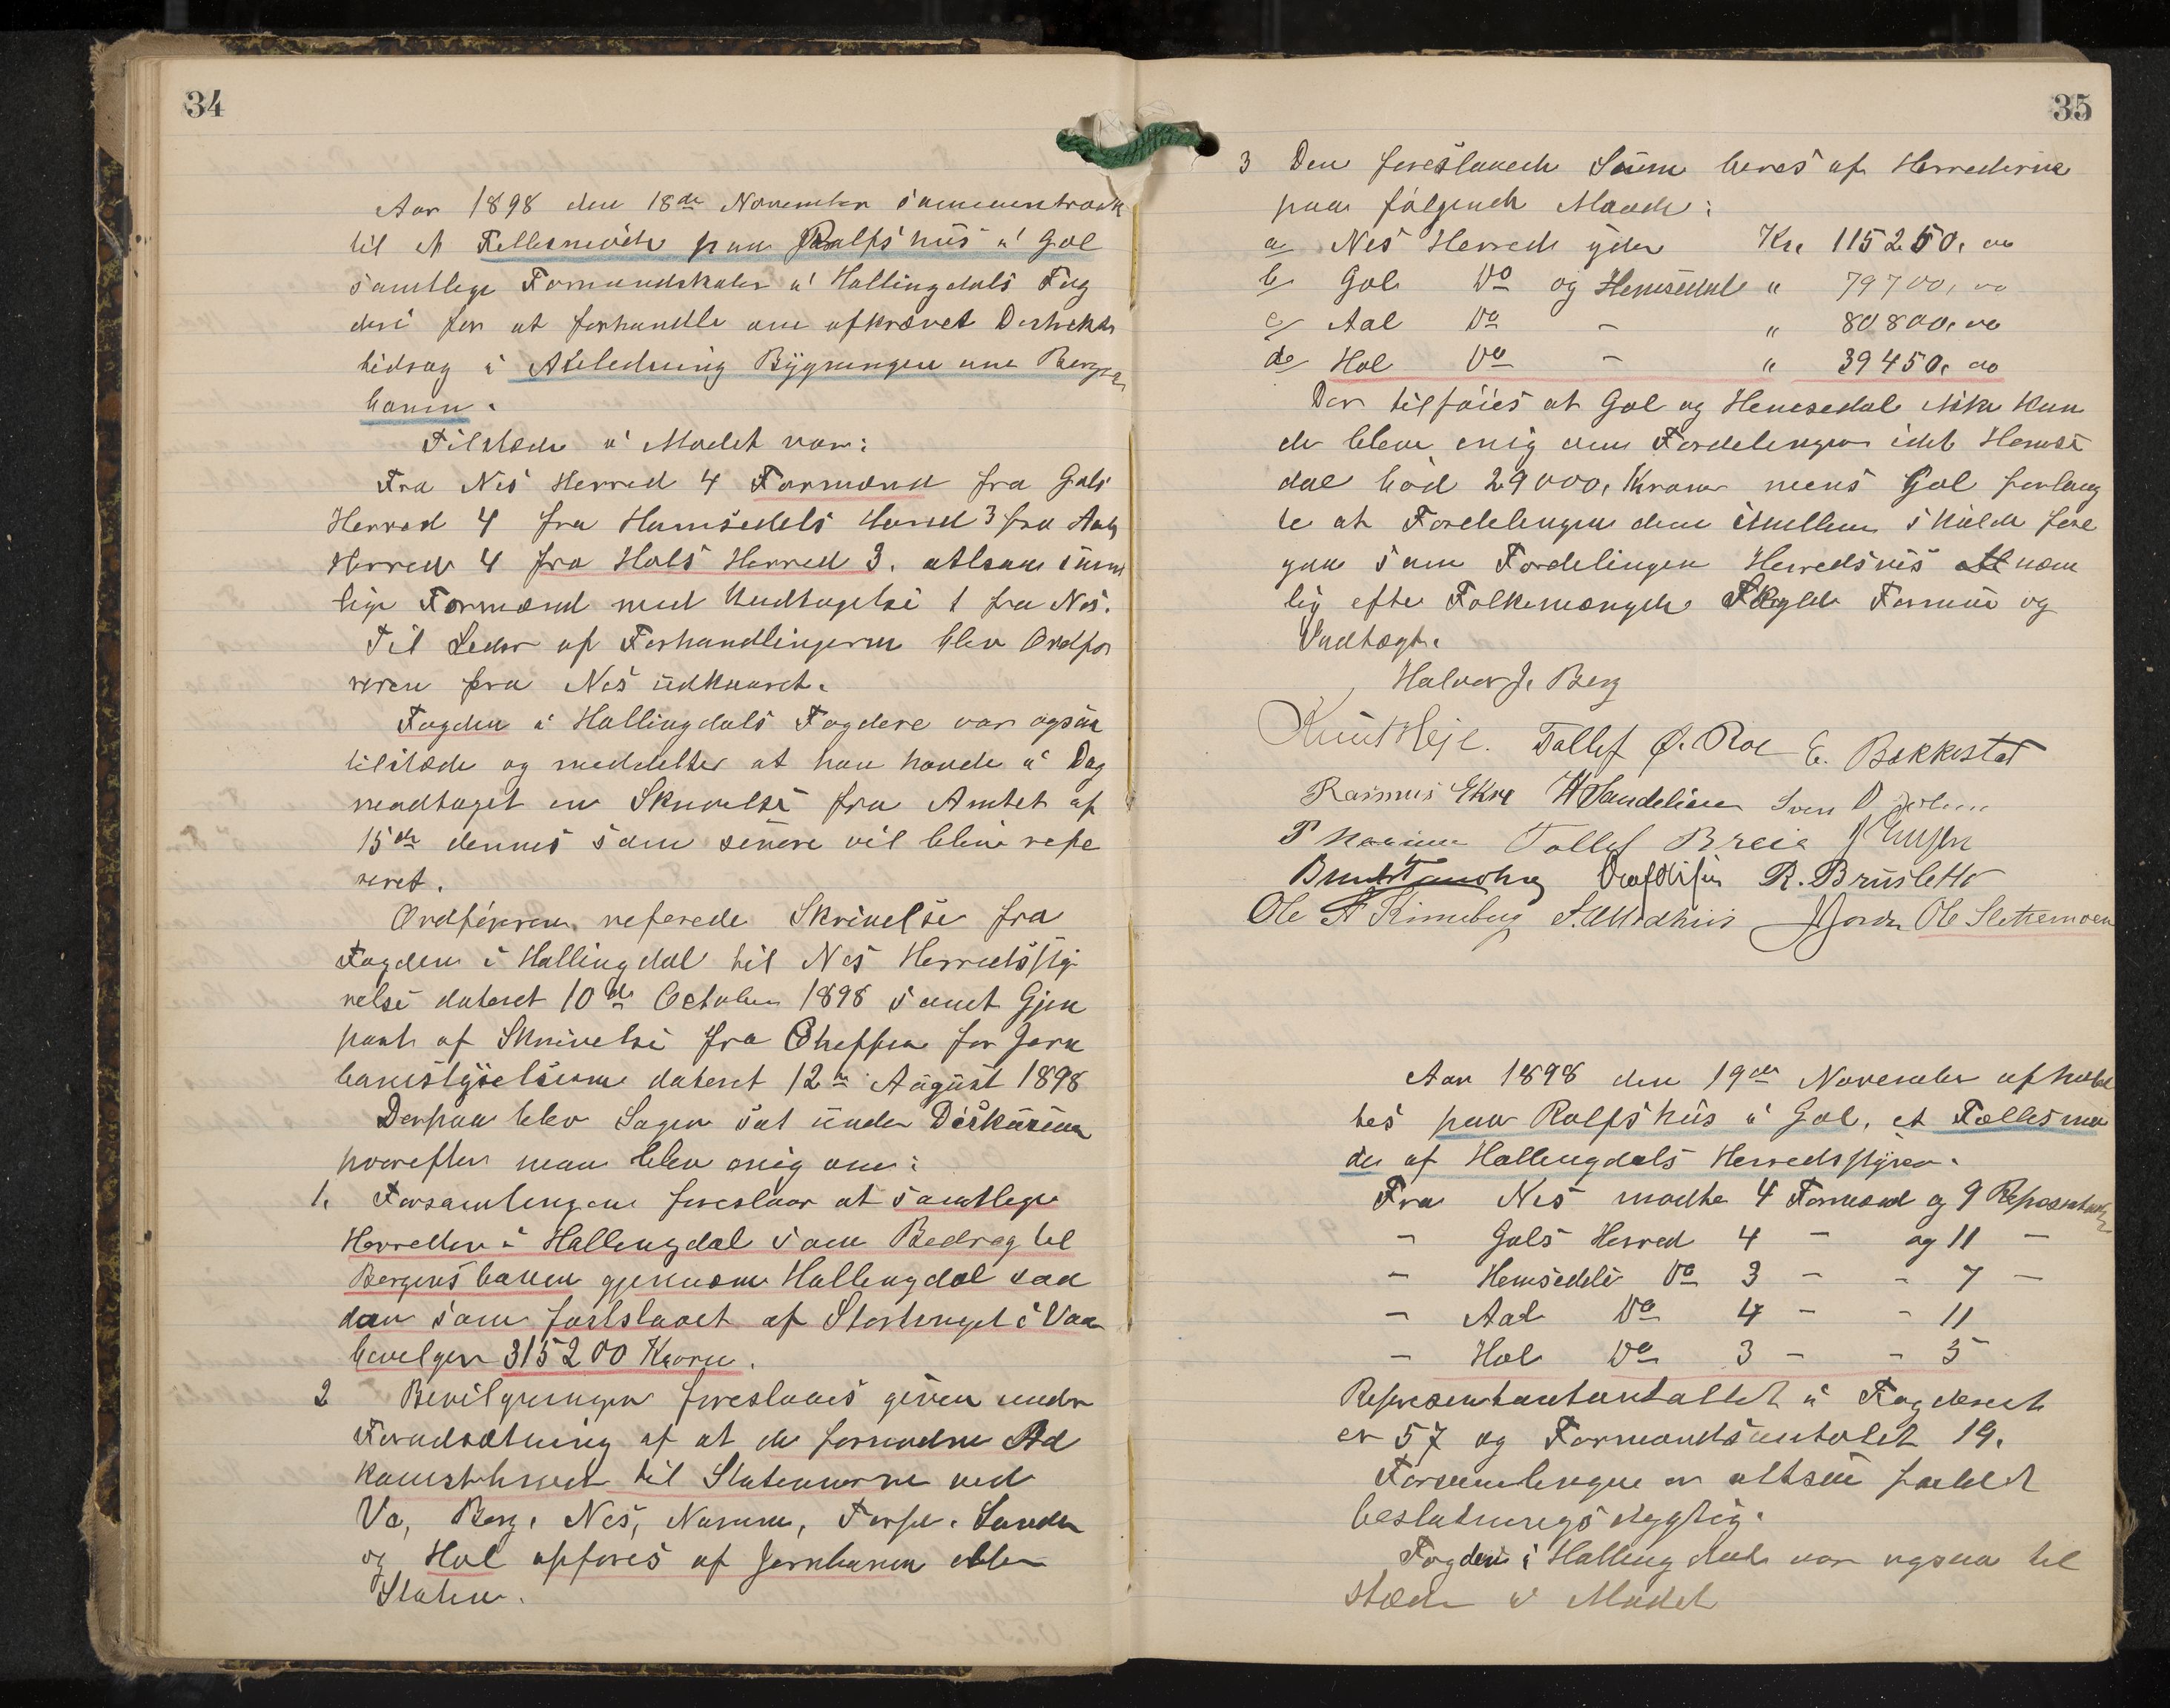 34
Aar 1898 den 18de November sammentraadt
til et Fellesmöde paa Rolfshus i Gol
samtlige Formandskaber i Hallingdals Fog
deri for at forhandle om afkrævet Distrikts
bidrag i Anledning Bygningen av Bergens
banen.
Tilstede i Mødet var:
Fra Nes Herred 4 Formænd fra Gols
Herred 4 fra Hemsedals Herred 3 fra Aals
Herred 4 fra Hols Herred 3. altsaa samt
lige Formænd med Undtagelse 1 fra Nes.
Til Leder af Forhandlingerne blev Ordfø
reren fra Nes udkaaret.
Fogden i Hallingdals Fogderi var ogsaa
tilstede og meddelte at han havde i Dag
modtaget en Skrivelse fra Amtet af
15de dennes som senere vil blive refe
reret.
Ordføreren referede Skrivelse fra
Fogden i Hallingdal til Nes Herredssty
relse dateret 10de October 1898 samt Gjen
part af Skrivelse fra Cheffen for Jern
banestyrelserne dateret 12te August 1898
Derpaa blev Sagen sat under Diskusion
hvorefter man blev enig om:
1. Forsamlingen foreslaar at samtlige
Herreder i Hallingdal som Bedrag til
Bergensbanen gjennom Hallingdal saa
dan som forslaaet af Stortinget i Vaar
bevilger 315200 Kroner.
2 Bevilgningen foreslaaes given under
Forudsætning af at de fornødne Ad
komsthuset til Stationerne ved
Va, Berg, Nes, Narum, Torpe. Sunde
og Hol opføres af Jernbanen eller
Staten.
35
3 Den foreslaaede Sum bæres af Herrederne
paa følgende Maade:
a/ Nes Herred yder Kr. 115250,00
b/ Gol Do og Hemsedal " 79700,00
c/ Aal Do - " 80800,00
d/ Hol Do - " 39450,00
Der tilføies at Gol og Hemsedal ikke kun
de bleve enig om Fordelingen idet Hemse
dal bød 29000, Kroner mens Gol forlang
te at Fordelingen dem imellem skulde fore
gaa som Fordelingen Herredsvis nem
lig efter Folkemængde Skyld Formue og
Indtægt.
Halvor J. Berg
Knut Heje. Tollef Ø. Roe E. Bakkestad
Rasmus Ekre Sven
Tollef Breie
R. Brusletto
Ole A Kinneberg Ole Slettemoen
Aar 1898 den 19de November afhold
tes paa Rolfshus i Gol, et Fællesmø
de af Hallingdals Herredsstyrer.
Fra Nes mødte 4 Formænd og 9 Repræsentanter
- Gols Herred 4 - og 11 -
- Hemsedals Do 3 - - 7 -
- Aal Do 4 - - 11
- Hol Do 3 - - 5
Representantantallet i Fogderiet
er 57 og Formandsantalet 19.
Forsamlingen er altsaa fuldt
beslutningsdygtig.
Fogden i Hallingdal var ogsaa til
stede i Mødet